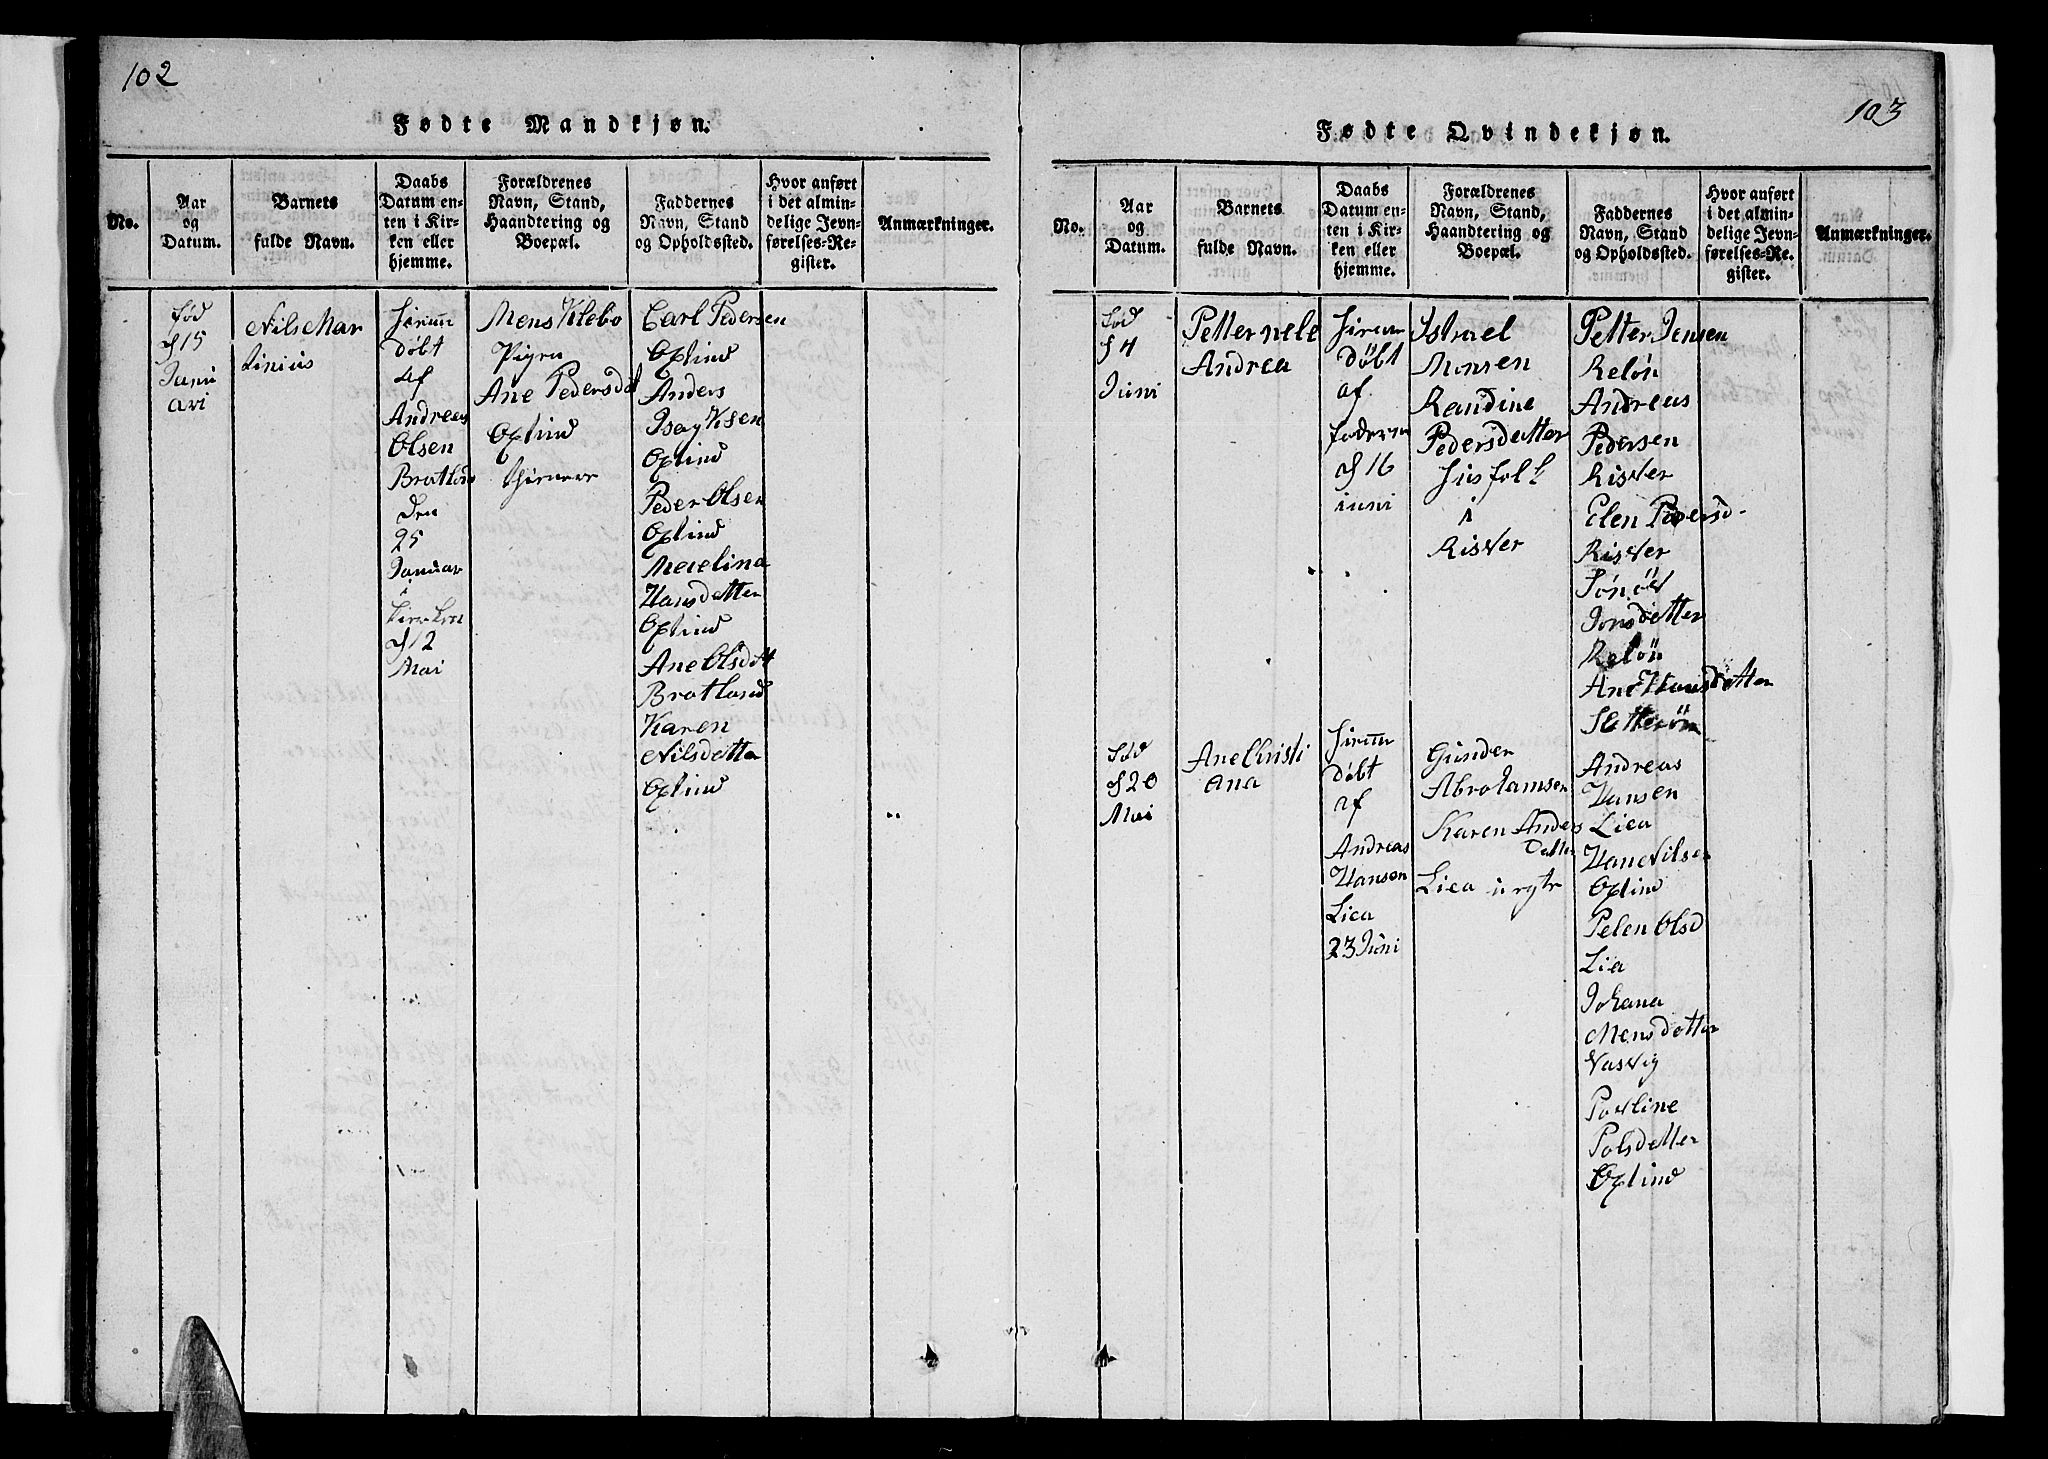 102
Fødte Mandkjøn.
No.
Aar
og
Datum.
Barnets
fulde Navn.
Daabs
Datum en-
ten i Kir-
ken eller
hjemme.
Forældrenes
Navn, Stand,
Haandtering og
Boepæl.
Faddernes
Navn, Stand
og Opholdssted.
Hvor anført
i det almin-
delige Jevn-
førelses-Re-
gister.
Anmærkninger.
fød
d 15
Janu
ari
Nils Mar
tinius
döbt
af
Andreas
Olsen
Bratland
den
25
Januar
i
d 12
Mai
Mens
Ane Pedersdat
Oxtind
Carl Pedersen
Oxtind
Anders
Oxtind
Peder Olsen
Oxtind
Hansdetter
Oxtind
Ane Olsdat
Bratland
Karen
Nilsdetter
Oxtind
103
Fødte Qvindekjøn.
No.
Aar
og
Datum.
Barnets
fulde Navn.
Daabs
Datum en-
ten i Kir-
ken eller
hjemme.
Forældrenes
Navn, Stand,
Haandtering og
Boepæl.
Faddernes
Navn, Stand
og Opholdssted.
Hvor anført
i det almin-
delige Jevn-
førelses-Re-
gister.
Anmærkninger.
Fød
d 4
Juni
Petternele
Andrea
döbt
af
d 16
iuni
Istrael
Monsen
Randine
Pedersdetter
Husfolk
i
Risver
Petter Jensen
Relön
Andreas
Pedersen
Risver
Elen Pedersd
Risver
Jonsdetter
Relön
Ane Hansdetter
Fød
d 20
Mai
Ane Kristi
ana
döbt
af
Andreas
Hansen
Liea
23 Juni
Gunder
Abrahamsen
Karen Anders
detter
Liea
Andreas
Hansen
Liea
Oxtind
Olsd
Lia
Johana
Mensdotter
Vasvig
Povline
Polsdetter
Oxtind